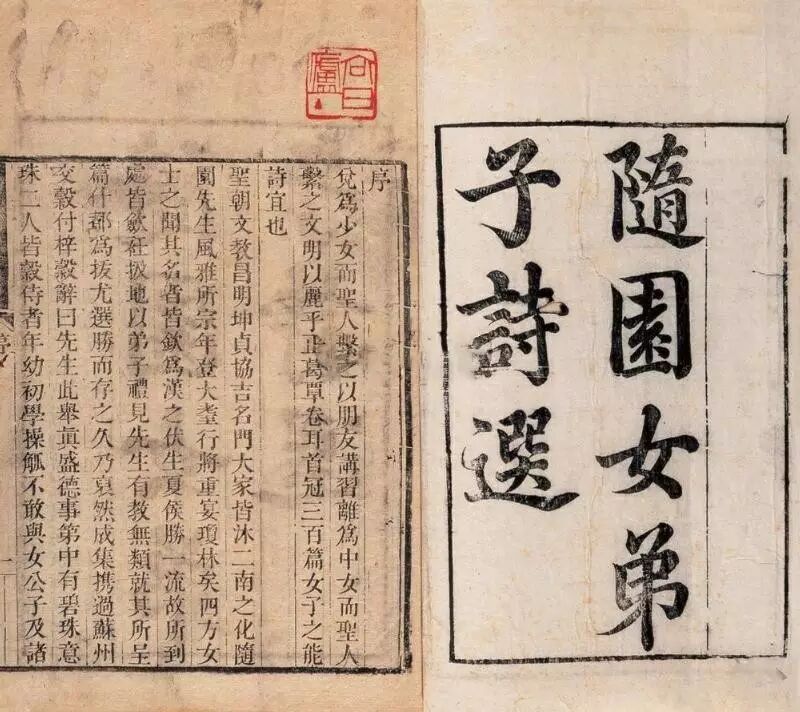 隨園女弟
子詩選
序
兌爲少女而聖人繫之以朋友講習離爲中女而聖人
繫之文明以麗乎正葛覃卷耳首冠三百篇女子之能
詩宜也
聖朝文教昌明坤貞協吉名門大家皆沐二南之化隨
園先生風雅所宗年登大耋行將重宴瓊林矣四方女
士之聞其名者皆欽爲漢之伏生夏侯勝一流故所到
處皆斂衽扱地以弟子禮見先生有教無類就其所呈
篇什都爲拔尤選勝而存之久乃裒然成集携過蘇州
交穀付梓穀辭曰先生此舉眞盛德事第中有碧珠意
珠二人皆穀侍者年幼初學操觚不敢與女公子及諸
序
一